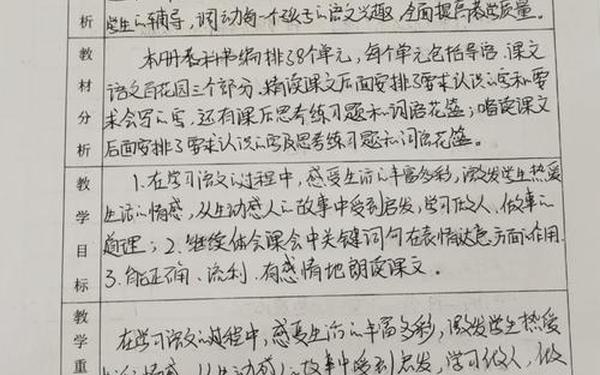 析
学生的辅导，调动每一个孩子的语文兴趣，全面提高教学质量。
教材分析
本册教科书编排了8个单元，每个单元包括导语、课文
语文百花园三个部分、精读课文后面安排了要求认识的字和要
求会写的字，还有课后思考练习题和词语花篮；略读课文
后面安排了要求认识的字及思考练习题和词语花篮。
教学目标
1.在学习语文的过程中，感受生活的丰富多彩，激发学生热爱
生活的情感，从生动感人的故事中受到启发，学习做人、做事的
道理；2.继续体会课会中关键词句在表情达意方面的作用.
3.能正确、流利、有感情地朗读课文。
教学重
在学习语文的过程中，感受生活的丰富多彩，激发学生热爱
生活的情感，从生动感人的故事中受到启发，学习做人，做